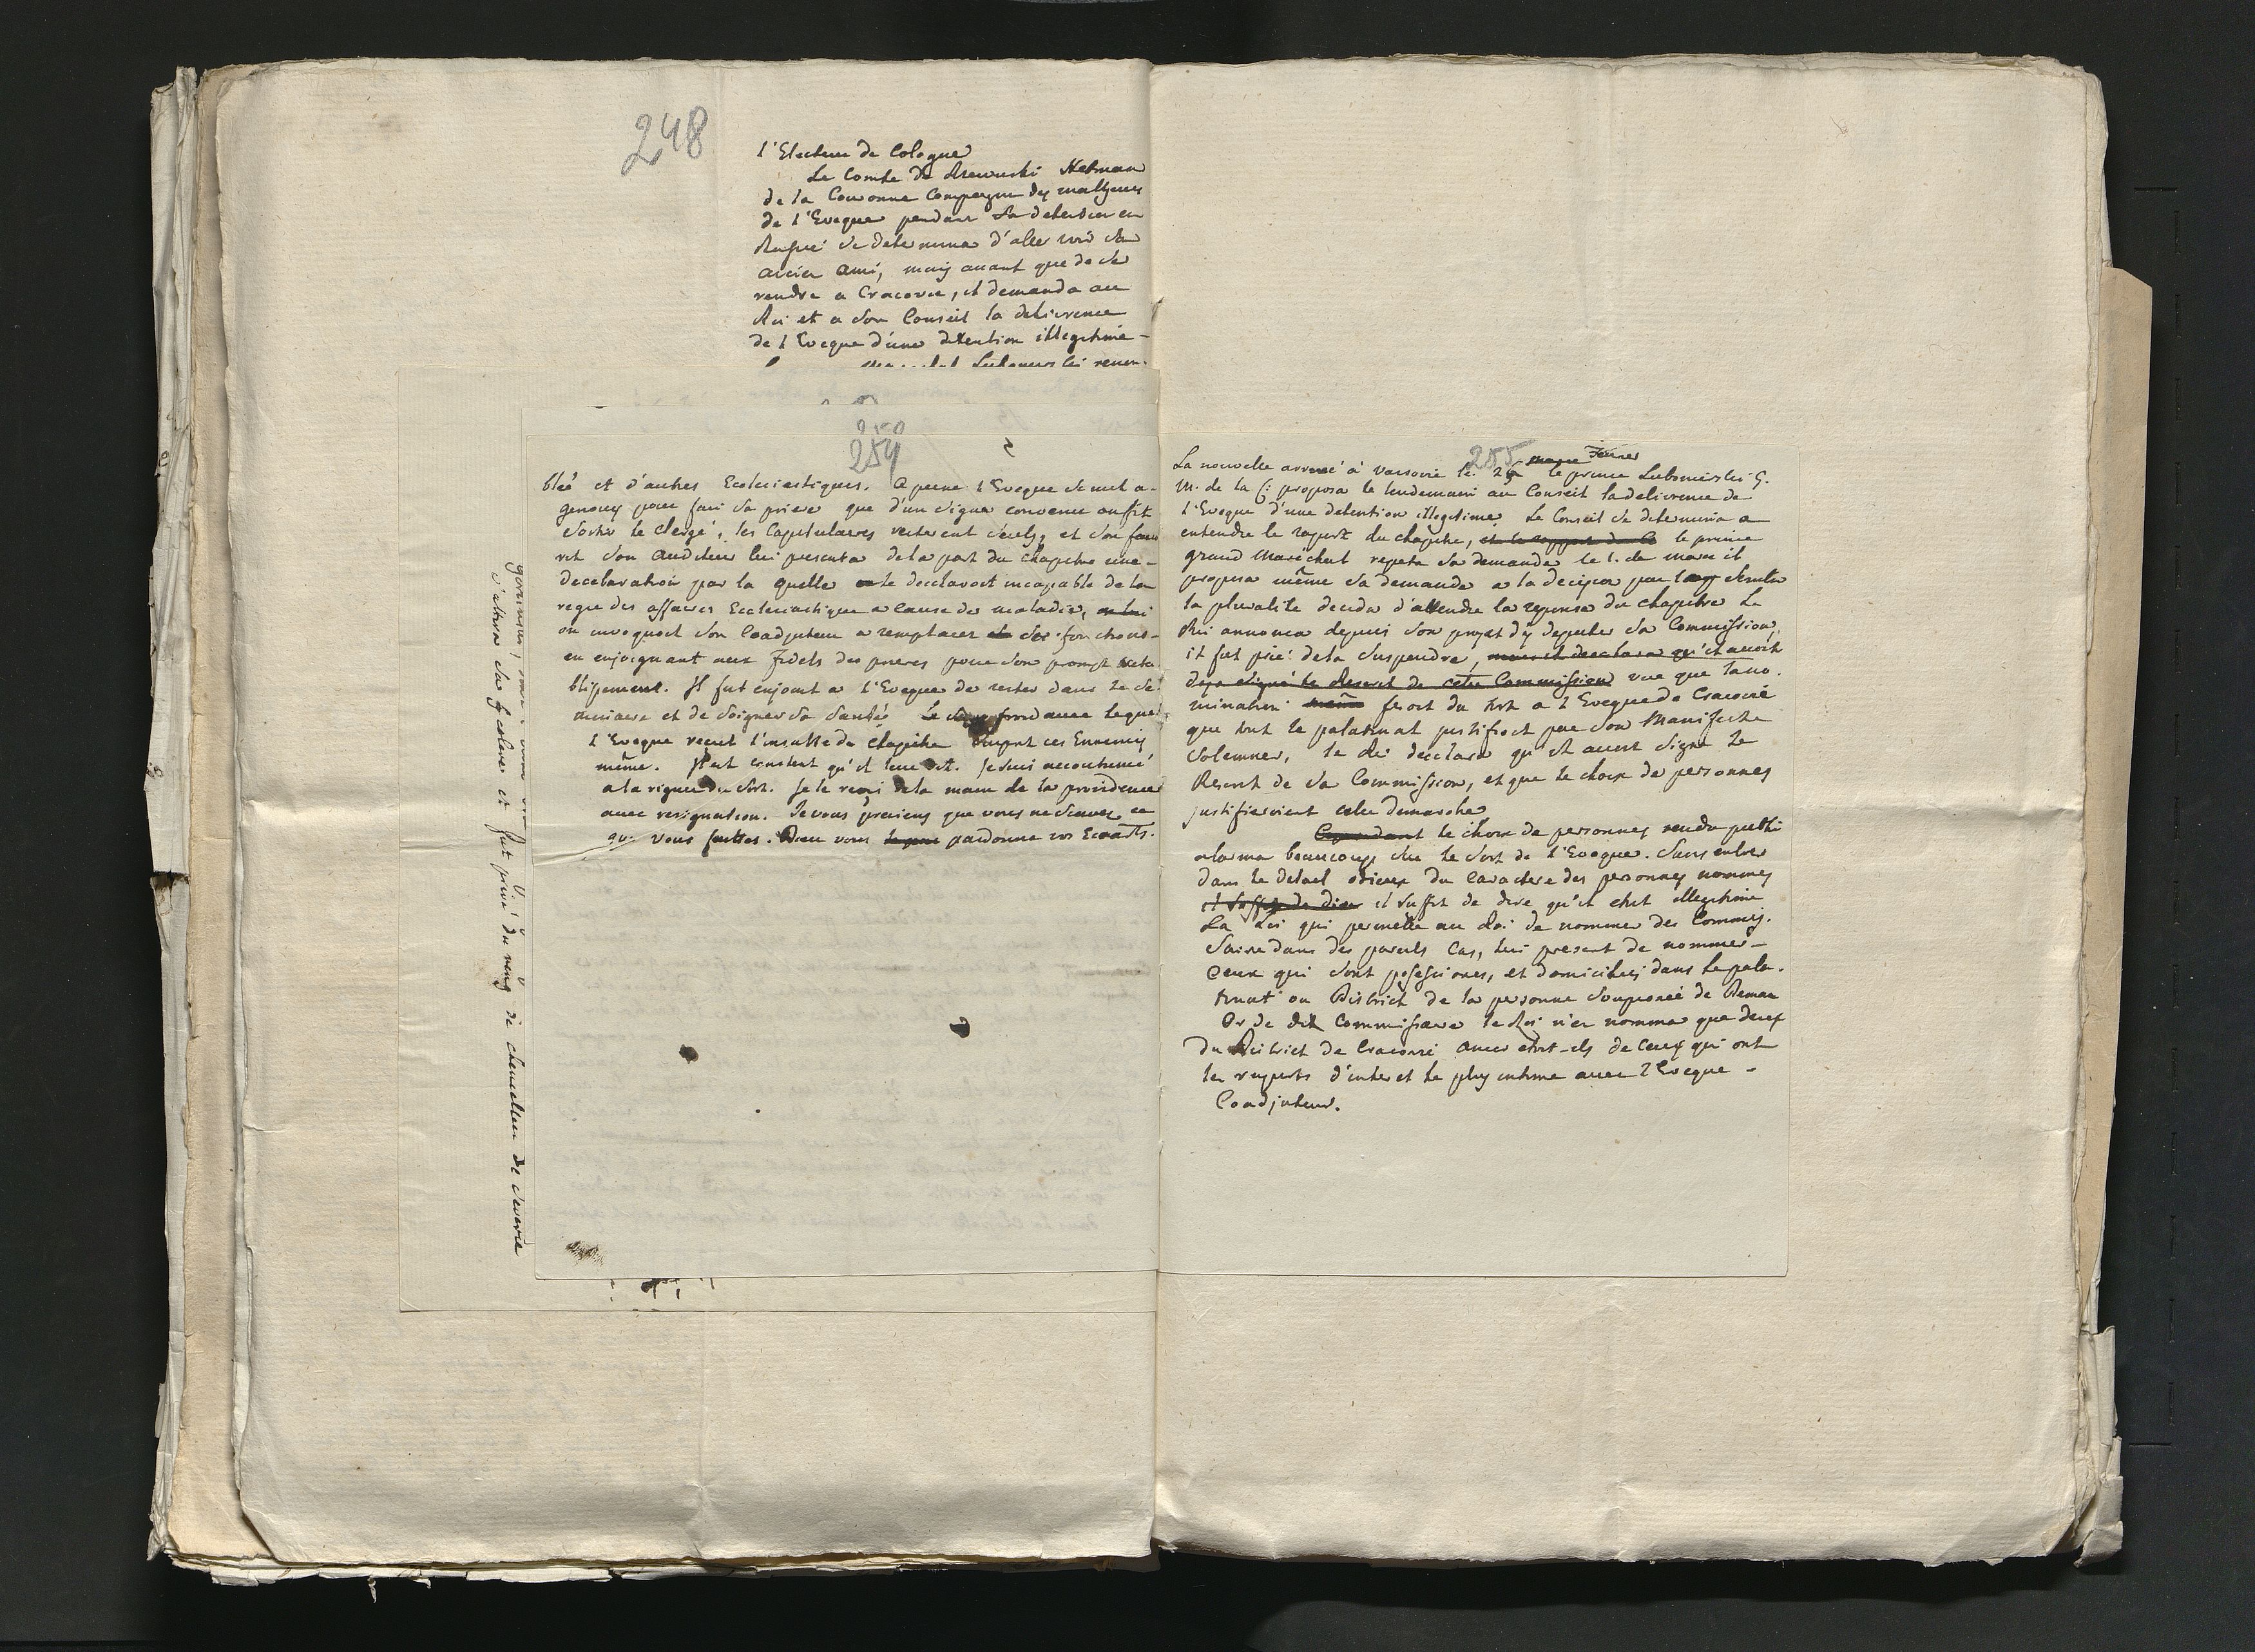 248
l'Electeur de Cologne
Le Comte de Rzewuski Hetman
de la Couronne Compagnon des malheurs
de l'Eveque pendant sa detention en
Russie se determina d'aller voir son
ancien Ami, mais avant que de se
rendre a Cracovie, il demanda au
Roi et a son Conseil la delivrence
de l Eveque d'une detention illegitime
Lubomirski
250
254
blée et d'autres Ecclesiastiques. A peine l'Eveque se mit a
genoux pour fair sa priere que d'un signe convenu on fit
sortir le Clergé, les Capitulaires resterent seuls, et son
son Auditeur lui presenta de la part du chapitre une
decclaration par la quelle on le decclaroit incapable de la
regie des affaires Ecclesiastique a cause de maladie, on lui
on invoquoit son Coadjuteur a remplacer ses fonctions
en enjoignant aux Fidels des prieres pour son prompt reta-
blissement. Il fut enjoint a l'Eveque de rester dans le Se-
minaire et de soigner sa santée Le sang froid avec lequel
l'Eveque reçut l'insulte du Chapitre ces Ennemis
même. Il est constent qu'il leur dit. Je suis accoutumé
a la rigueur du sort. Je le reçoi de la main de la providence
avec resignation. Je vous previens que vous ne sçavez ce
que vous faittes. Dieu vous pardonne vos Ecarts.
d'alterer sa colere et fut privé du rang de chancellier de Severie
255
mars Fevrier
La nouvelle arrivé à Varsovie le 26 le prince Lubomirski G.
M. de la C: proposa le lendemain au Conseil la delivrence de
l'Eveque d'une detention illegitime. Le Conseil se determina a
entendre le raport du chapitre, et le rapport de la le prince
grand Maréchal repeta sa demande le 1. de mars il
proposa même sa demande a la decision par scrutin
la pluralite decida d'attendre la reponse du chapitre Le
Roi annonca depuis son projet d'y deputer sa Commission,
il fut prié de la suspendre, mais il decclara qu'il avoit
deja signé le Rescrit de cette Commission vue que la no-
mination même feroit du tort a l Eveque de Cracovie
que tout le palatinat justifioit par son Manifeste
Solemner, le Roi decclara qu'il avoit signe le
Rescrit de sa Commission, et que le choix de personnes
justifieroient cette demarche
Cependant le choix de personnes rendu publi
alarma beaucoup sur le sort de l'Eveque. Sans entrer
dans le detail odieux du Caractere des personnes nommes
il suffit de dire il suffit de dire qu'il etoit illegitime
La Loi qui permette au Roi de nommer des Commis-
saire dans des pareils Cas, lui prescrit de nommer
Ceux qui sont possessiones, et domiciliés dans le pala-
tinat ou District de la personne soupconeé de
Or de dix Commissaire le Roi n'en nomma que deux
du District de Cracovie encor etoit-ils de Ceux qui ont
les raports d'interet le plus intime avec l'Eveque
Coadjuteur.